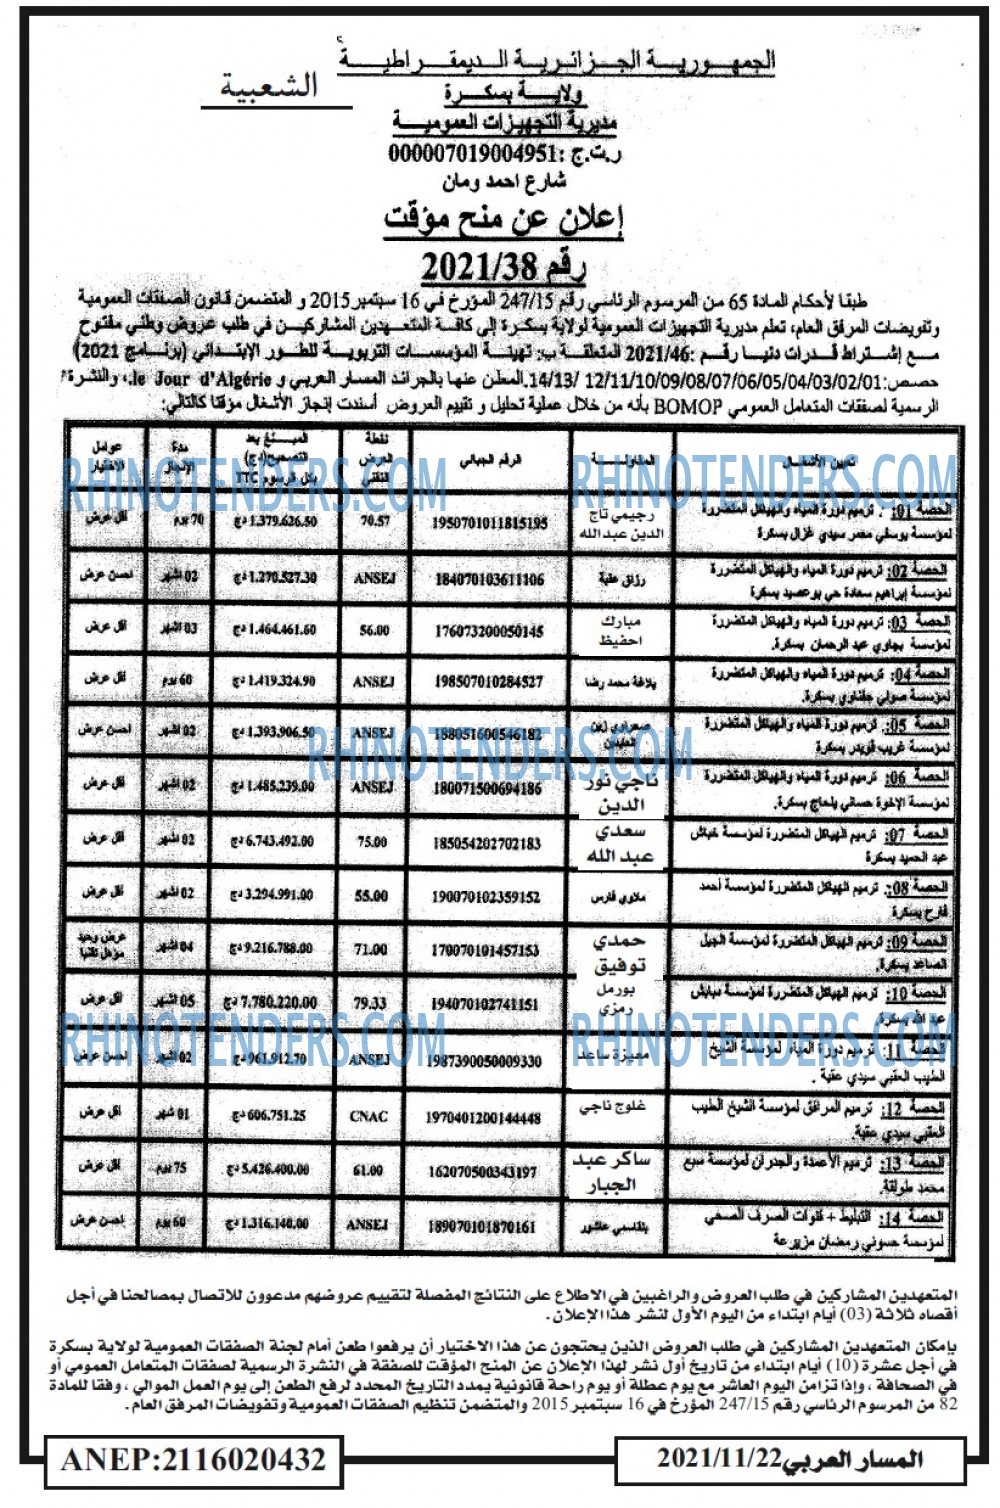 الجمهورية الجزائرية الديمقراطية
الشعبية
ولاية بسكرة
مديرية التجهيزات العمومية
ر.ت.ج :000007019004951
شارع احمد ومان
إعلان عن منح مؤقت
رقم 2021/38
طبقا لأحكام المادة 65 من المرسوم الرئاسي رقم 247/15 المؤرخ في 16 سبتمبر 2015 و المتضمن قانون الصفقات العمومية
وتفويضات المرفق العام، تعلم مديرية التجهيزات العمومية لولاية بسكرة إلى كافة المتعهدين المشاركين في طلب عروض وطني مفتوح
مع إشتراط قدرات دنيا رقم :2021/46 المتعلقة ب: تهيئة المؤسسات التربوية للطور الإبتدائي (برنامج 2021)
حصص:14/13/ 12/11/10/09/08/07/06/05/04/03/02/01.المعلن عنها بالجرائد المسار العربي و le Jour d'Algérie، والنشرة
الرسمية لصفقات المتعامل العمومي BOMOP بأنه من خلال عملية تحليل و تقييم العروض أسندت إنجاز الأشغال مؤقتا كالتالي:
تعيين الأشغال | المقاولة | الرقم الجبائي | نقطة العرض التقني | المبلغ بعد التصحيح(دج) بكل الرسوم TTC | مدة الإنجاز | عوامل الاختيار
الحصة 01: ترميم دورة المياه والهياكل المتضررة لمؤسسة يوسفي معمر سيدي غزال بسكرة | رحيمي تاج الدين عبدالله | 195070101181519​5 | 70.57 | 1.379.626.50 دج | 70 يوم | اقل عرض
الحصة 02: ترميم دورة المياه والهياكل المتضررة لمؤسسة إبراهيم سعادة حي بوعصيد بسكرة | رزاق عقبة | 184070103611106 | ANSEJ | 1.270.527.30 دج | 02 اشهر | احسن عرض
الحصة 03: ترميم دورة المياه والهياكل المتضررة لمؤسسة بجاوي عبد الرحمان بسكرة. | مبارك احفيظ | 176073200050145 | 56.00 | 1.464.461.60 دج | 03 اشهر | اقل عرض
الحصة 04: ترميم دورة المياه والهياكل المتضررة لمؤسسة صولي بسكرة. | بلاغة محمد رضا | 198507010284527 | ANSEJ | 1.419.324.90 دج | 60 يوم | اقل عرض
الحصة 05: ترميم دورة المياه والهياكل المتضررة لمؤسسة غريب قويدر بسكرة. | صحراوي زين العابدين | 188051600546182 | ANSEJ | 1.393.906.50 دج | 02 اشهر | احسن عرض
الحصة 06: ترميم دورة المياه والهياكل المتضررة لمؤسسة الإخوة حساني بلحاج بسكرة. | ناجي نور الدين | 180071500694186 | ANSEJ | 1.485.239.00 دج | 02 اشهر | اقل عرض
الحصة 07: ترميم الهياكل المتضررة لمؤسسة خباش عبد الحميد بسكرة | سعدي عبدالله | 185054202702183 | 75.00 | 6.743.492.00 دج | 02 اشهر | اقل عرض
الحصة 08: ترميم الهياكل المتضررة لمؤسسة أحمد قارح بسكرة | ملاوي فارس | 190070102359152 | 55.00 | 3.294.991.00 دج | 02 اشهر | اقل عرض
الحصة 09: ترميم الهياكل المتضررة لمؤسسة الجيل الصاعد بسكرة. | حمدي توفيق | 170070101457153 | 71.00 | 9.216.788.00 دج | 04 اشهر | عرض وحيد مؤهل تقنيا
الحصة 10: ترميم الهياكل المتضررة لمؤسسة دبابش عبد الله بسكرة | بورمل رمزي | 194070102741151 | 79.33 | 7.780.220.00 دج | 05 اشهر | اقل عرض
الحصة 11: ترميم دورة المياه لمؤسسة الشيخ الطيب العقبي سيدي عقبة . | معيزة ساعد | 1987390050009330 | ANSEJ | 961.912.70 دج | 02 اشهر | احسن عرض
الحصة 12: ترميم المرافق لمؤسسة الشيخ الطيب العقبي سيدي عقبة. | غلوج ناجي | 1970401200144448 | CNAC | 606.751.25 دج | 01 شهر | اقل عرض
الحصة 13: ترميم الأعمدة والجدران لمؤسسة سبع محمد طولقة. | ساكر عبد الجبار | 162070500343197 | 61.00 | 5.426.400.00 دج | 75 يوم | اقل عرض
الحصة 14: التبليط + قنوات الصرف الصحي لمؤسسة حسوني رمضان مزيرعة | بلقاسمي عاشور | 189070101870161 | ANSEJ | 1.316.140.00 دج | 60 يوم | احسن عرض
المتعهدين المشاركين في طلب العروض والراغبين في الاطلاع على النتائج المفصلة لتقييم عروضهم مدعوون للاتصال بمصالحنا في أجل
أقصاه ثلاثة (03) أيام ابتداء من اليوم الأول لنشر هذا الإعلان.
بإمكان المتعهدين المشاركين في طلب العروض الذين يحتجون عن هذا الاختيار أن يرفعوا طعن أمام لجنة الصفقات العمومية لولاية بسكرة
في أجل عشرة (10) أيام ابتداء من تاريخ أول نشر لهذا الإعلان عن المنح المؤقت للصفقة في النشرة الرسمية لصفقات المتعامل العمومي أو
في الصحافة ، وإذا تزامن اليوم العاشر مع يوم عطلة أو يوم راحة قانونية يمدد التاريخ المحدد لرفع الطعن إلى يوم العمل الموالي ، وفقا للمادة
82 من المرسوم الرئاسي رقم 247/15 المؤرخ في 16 سبتمبر 2015 والمتضمن تنظيم الصفقات العمومية وتفويضات المرفق العام.
ANEP:2116020432
المسار العربي 2021/11/22
RHINOTENDERS.COM
RHINOTENDERS.COM
RHINOTENDERS.COM
RHINOTENDERS.COM
RHINOTENDERS.COM